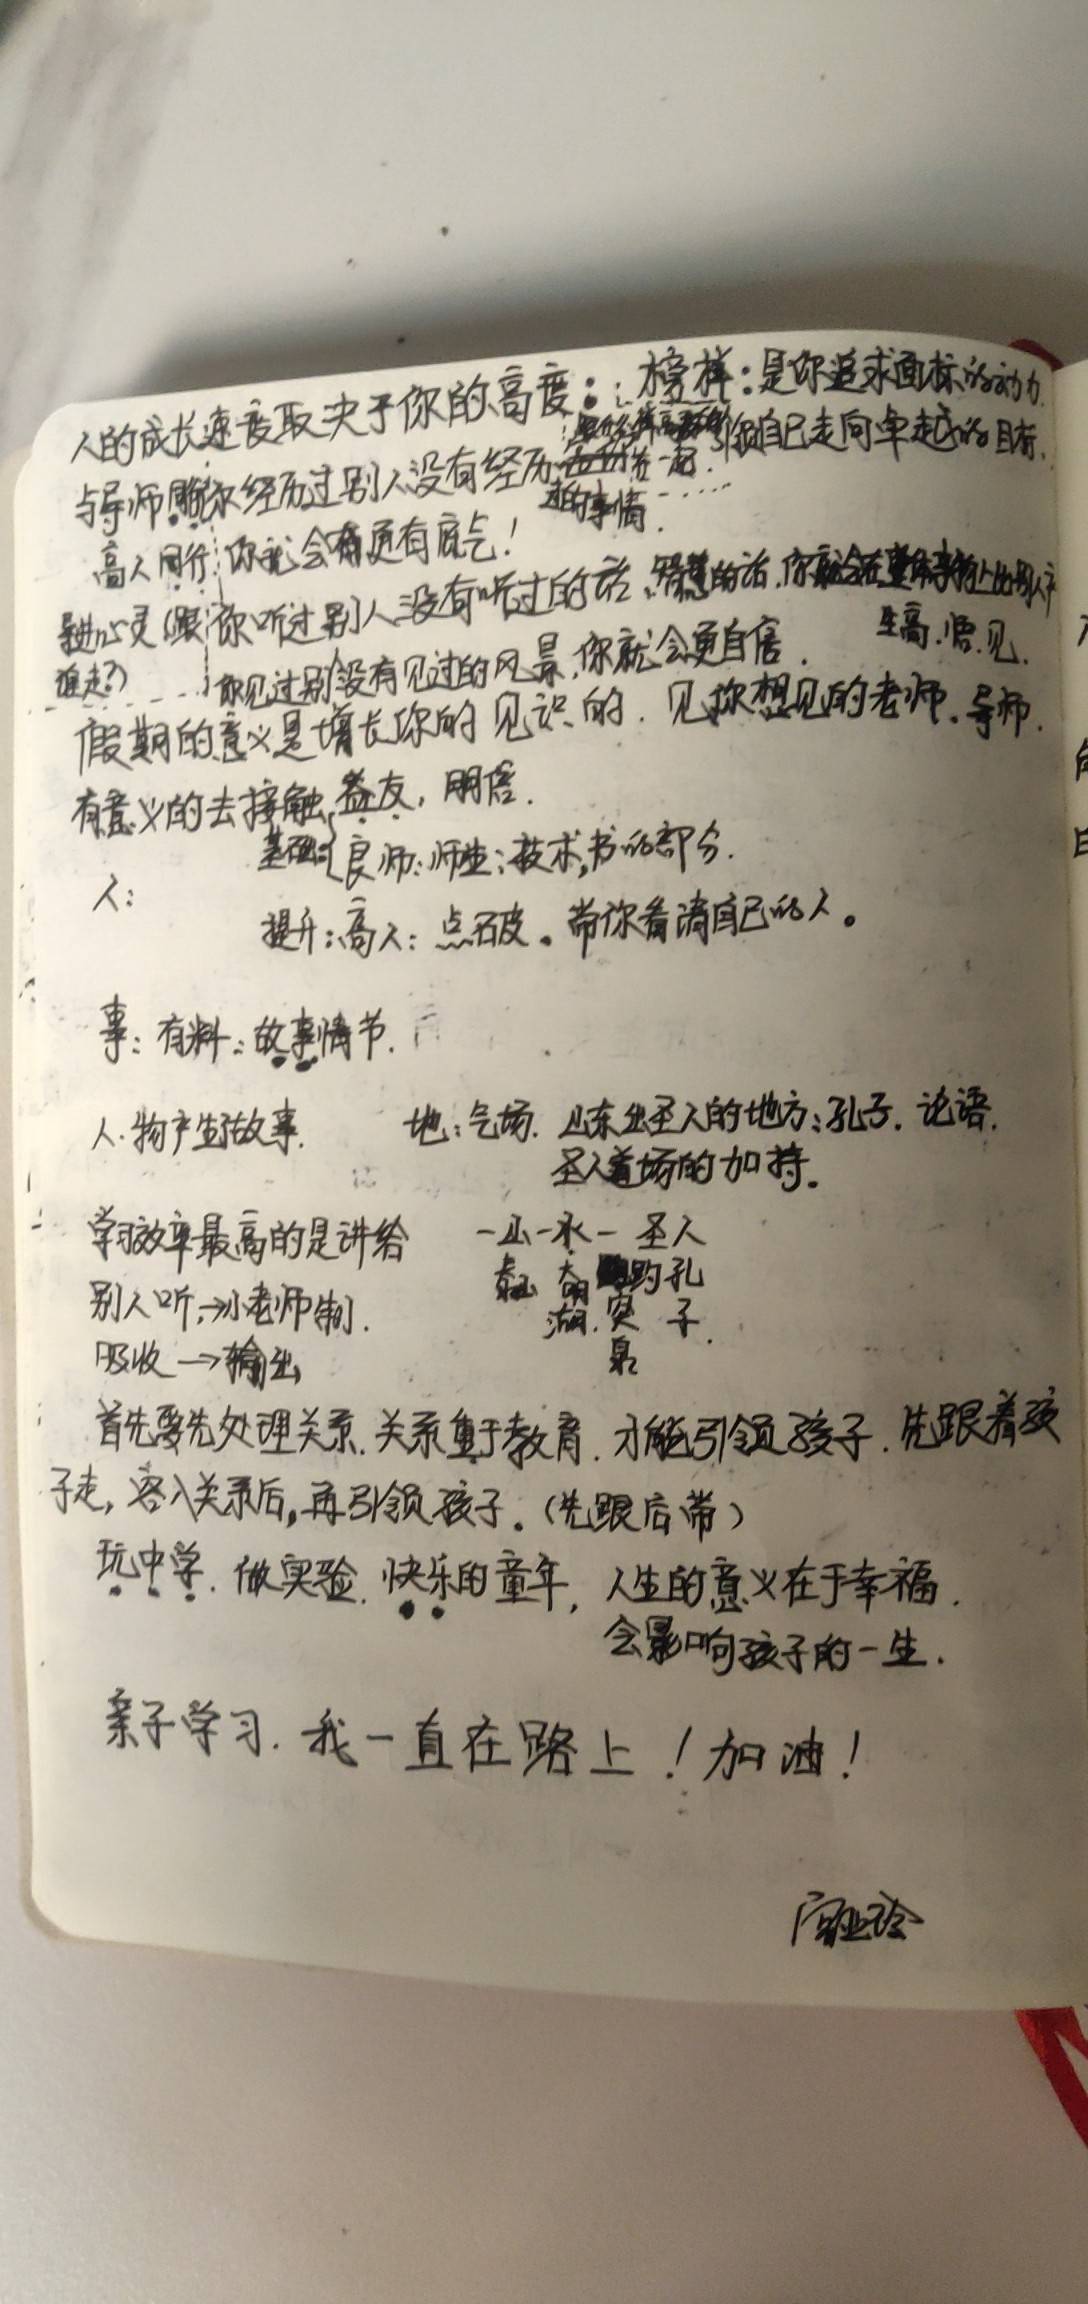 榜样：是你追求目标的动力.
人的成长速度取决于你的高度：
引领自己走向卓越的目标.
与导师 你经历过别人没有经历
过的事情.
高人同行 你就会有更有底气！
你听过别人没有听过的话、智慧的话.
生高.悟.见.
走进心灵（跟
谁走？）
你见过别人没有见过的风景，你就会更自信.
假期的意义是增长你的见识的. 见你想见的老师、导师.
有意义的去接触 益友，朋信.
人：
基础：良师：师生：技术，书的部分.
提升：高人：点破。带你看清自己的人。
事：有料：故事情节.
人.物产生故事.
地：气场. 山东出圣人的地方：孔子. 论语.
圣人道场的加持。
学习效率最高的是讲给
别人听.→小老师制.
吸收→输出
一山一水一圣人
泰山 大明湖. 趵突泉 孔子.
首先要先处理关系. 关系重于教育. 才能引领孩子. 先跟着孩
子走，容入关系后，再引领孩子。（先跟后带）
玩中学. 做实验. 快乐的童年，人生的意义在于幸福.
会影响孩子的一生.
亲子学习. 我一直在路上！加油！